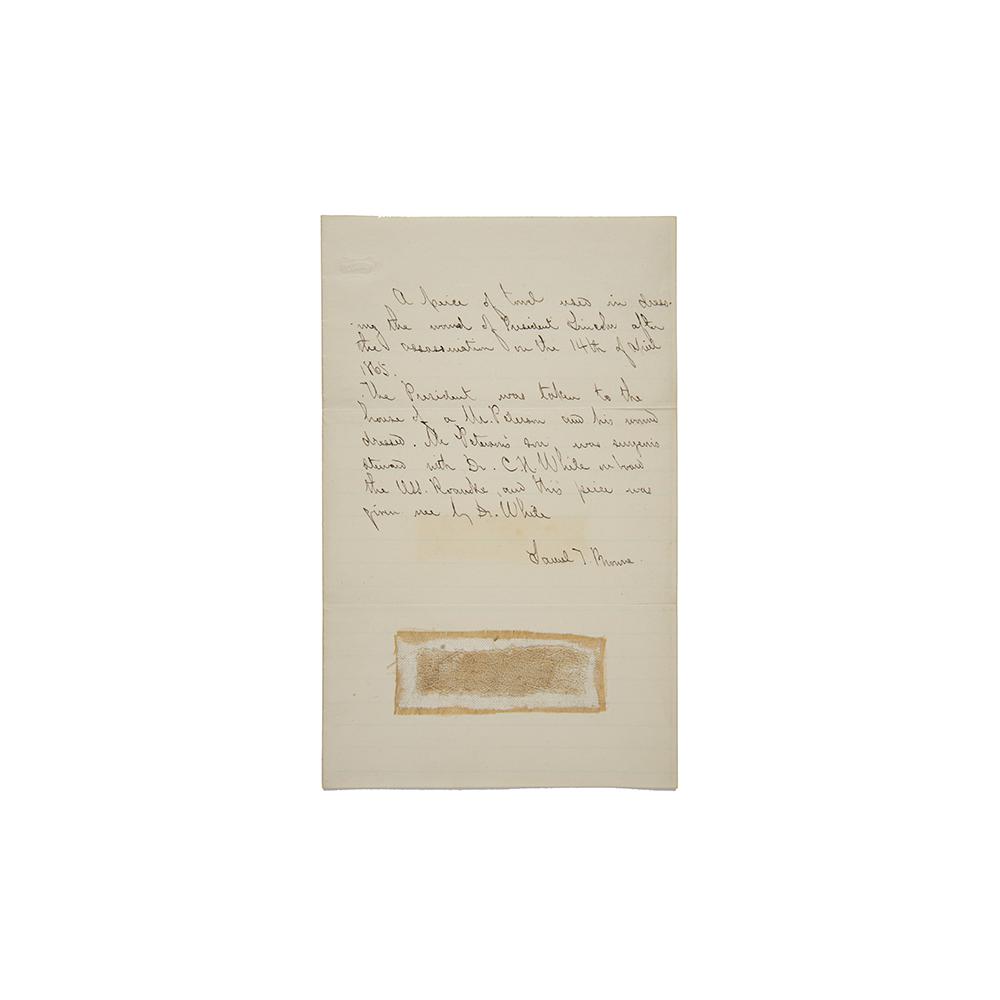 A peice of towel used in dress-
-ing the wound of President Lincoln after
the assassination on the 14th of April
1865.
The President was taken to the
house of a Mr. Peterson and his wound
dressed. Mr Peterson's son, was surgeon's
steward with Dr. C.H. White on board
the USS. Roanoke, and this peice was
given me by Dr. White
Samuel T. Browne.